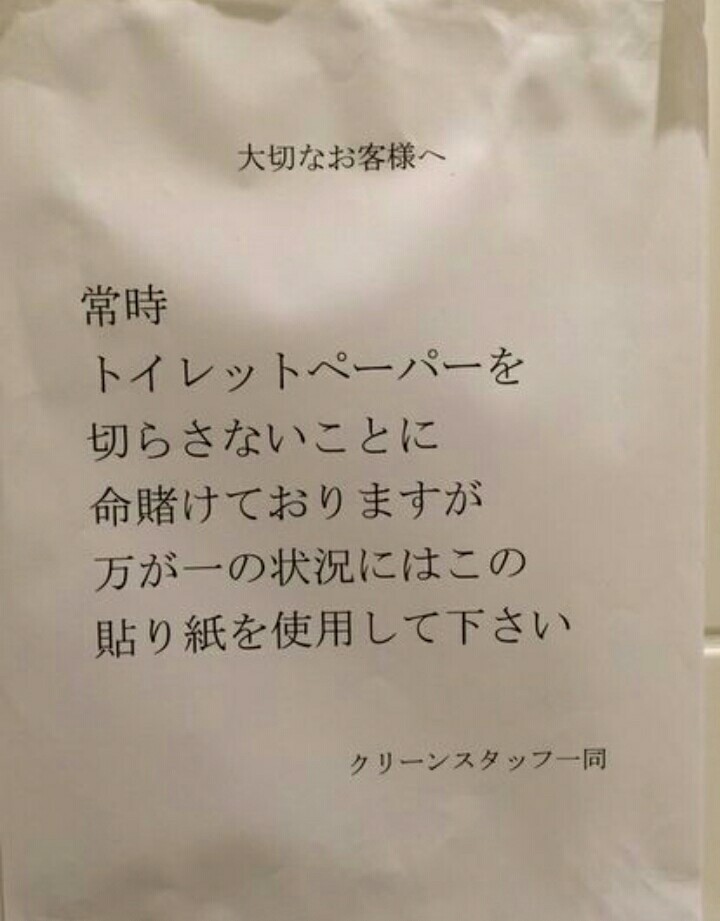 大切なお客様へ
常時
トイレットペーパーを
切らさないことに
命賭けておりますが
万が一の状況にはこの
貼り紙を使用して下さい
クリーンスタッフ一同